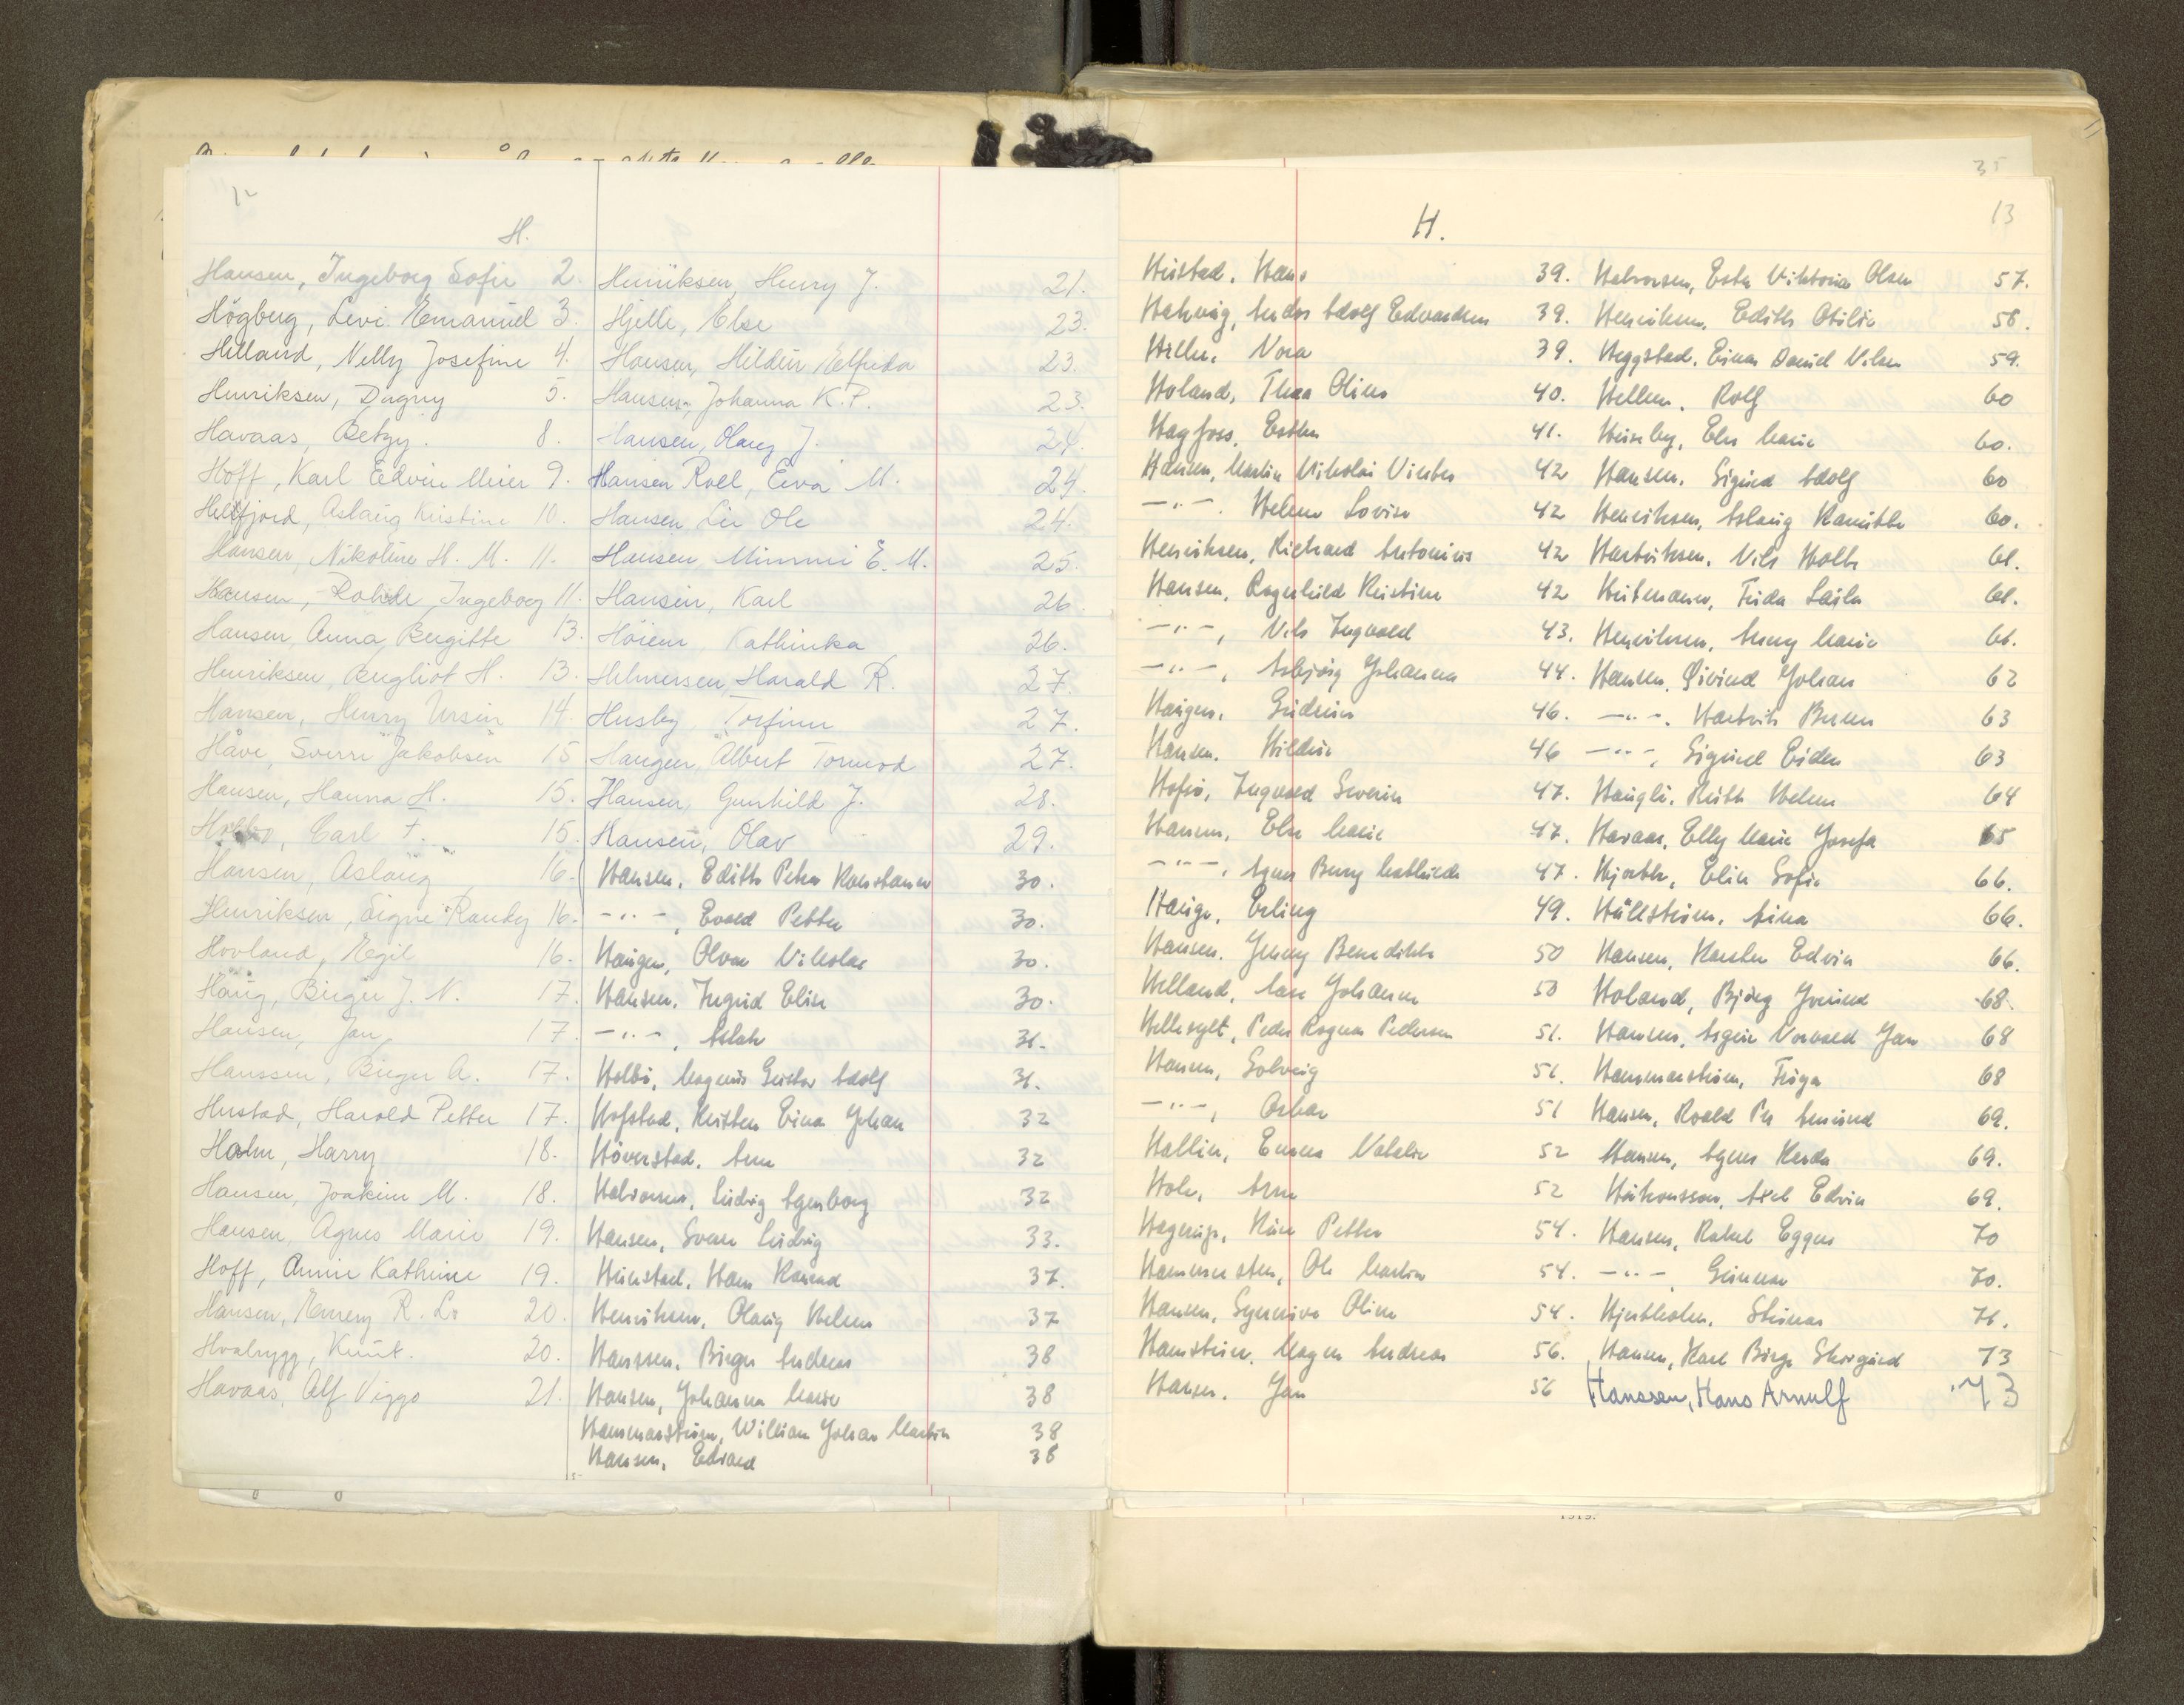 12
H.
Hansen, Ingeborg Sofie 2.
Högberg, Levi Emanuel 3.
Helland, Nelly Josefine 4.
Henriksen, Dagny 5.
Havaas, Betzy. 8.
Hoff, Karl Edvin Meier 9.
Hellfjord, Aslaug Kristine 10.
Hansen, Nikoline H. M. 11.
Hansen, Rohde, Ingeborg 11.
Hansen, Anna Bergitte 13.
Henriksen, Bergliot H. 13.
Hansen, Henry Ursin 14.
Håve, Sverre Jakobsen 15
Hansen, Hanna H. 15.
Carl F. 15.
Hansen, Aslaug 16.
Henriksen, Signe Randy 16.
Hovland, Egil 16.
Haug, Birger J. N. 17.
Hansen, Jan, 17.
Hanssen, Birger A. 17.
Hustad, Harold Petter 17.
Holm, Harry 18.
Hansen, Joakim M. 18.
Hansen, Agnes Marie 19.
Hoff, Annie Kathrine 19.
Hansen, Emery R. L. 20.
Hvalrygg, Knut. 20.
Havaas, Alf Viggo 21.
Henriksen, Henry J. 21.
Hjelle, Else 23.
Hansen, Hildur Elfrida 23.
Hansen, Johanna K.P. 23.
Hansen, Olaug J. 24.
Hansen Roll, Eva M. 24.
Hansen Lie Ole 24.
Hansen Mimmi E. M. 25.
Hansen, Karl 26
Höiem Kathinka 26.
Helmersen, Harald R. 27.
Husby, Torfinn 27.
Haugen, Albert Tormod 27.
Hansen, Gunhild J. 28.
Hansen, Olav 29.
Hansen, Edith Petra Konstanse 30.
-"-, Evald Petter 30.
Haugen, Olvar Nikolai 30.
Hansen, Ingrid Elise 30.
-"-, Aslak 31.
Holbö, Magnus Gustav Adolf 31.
Hofstad, Kristen Einar Johan 32
Höverstad, Arne 32
Halvorsen, Ludvig Agenborg 32
Hansen, Sverre Ludvig 33.
Hunstad, Hans Konrad 37.
Henriksen, Olaug Helene 37
Hanssen, Birger Andreas 38
Hansen, Johanna Marie 38
Hammarström, William Johan Martin 38
Hansen, Edvard 38
35
13
H.
Hustad, Hans 39.
Halvig, Anders Adolf Edvardsen 39.
Heller, Nora 39.
Holand, Thea Oline 40.
Hagfoss, Esther 41.
Hansen, Martin Nikolai Vinter 42
-"-. Helene Lovise 42
Henriksen, Richard Antonius 42
Hansen, Ragnhild Kristine 42
-"-, Nils Ingvald 43.
-"-, Asbjörg Johanna 44.
Haugen, Gudrun 46.
Hansen, Hildur 46
Hofsö, Ingvald Severin 47.
Hansen, Else Marie 47.
-"-, Agnes Mathilde 47.
Hauge, Erling 49.
Hansen, Jenny Benedikte 50
Helland, Aase Johanne 50
Hellesylt, Peder Ragnar Pedersen 51.
Hansen, Solveig 51.
-"-, Oskar 51
Hallin, Emma Natalie 52
Hole, Arne 52
Hagerup, Kåre Petter 54.
Hammersten, Ole Martin 54.
Hansen, Synnöve Oline 54.
Hamstein, Magne Andreas 56.
Hansen, Jan 56
Halvorsen, Ester Viktoria Olsen 57.
Henriksen, Edith Otilie 58.
Heggstad, Einar Daniel Nilsen 59.
Hellem, Rolf 60
Huseby, Else Marie 60.
Hansen, Sigurd Adolf 60
Henriksen, Aslaug Kamilla 60.
Hartviksen, Nils Holth 61.
Heitmann, Frida Laila 61.
Henriksen, Anny Marie 61.
Hansen, Øivind Johan 62
-"-, Hartvik Bersen 63
-"-, Sigurd Eiden 63
Haugli, Ruth Helene 64
Havaas, Elly Marie Josefa 65
Hjorth, Elin Sofie 66.
Hällström, Aina 66.
Hansen, Karsten Edvin 66.
Holand, Björg Jorund 68.
Hansen, Asgeir Norvald Jan 68
Hammarström, Tuga 68
Hansen, Roald Per Amund 69.
Hansen, Agnes Kanda 69.
Håkonsson, Axel Edvin 69.
Hansen, Rakel Eggen 70
-"-, Gunnar 70.
Hjertholm, Steinar 71.
Hansen, Karl Birger Skorgård 73
Hanssen, Hans Arnulf 73